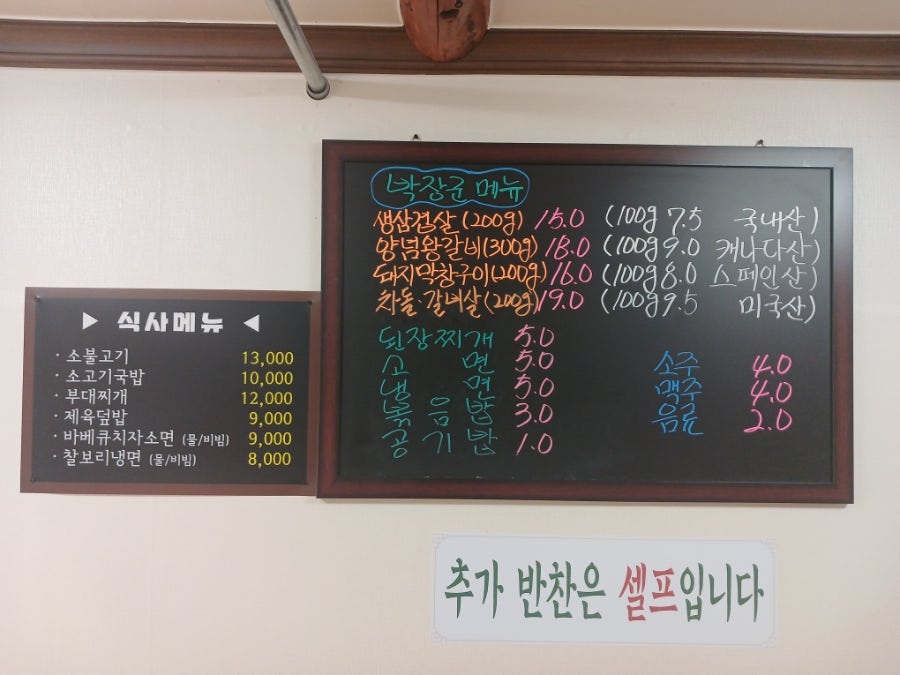 ▶ 식사메뉴 ◀
· 소불고기 13,000
· 소고기국밥 10,000
· 부대찌개 12,000
· 제육덮밥 9,000
· 바베큐치자소면 (물/비빔) 9,000
· 찰보리냉면 (물/비빔) 8,000
박장군 메뉴
생삼겹살 (200g) 15.0 (100g 7.5 국내산)
양념왕갈비(300g) 18.0 (100g 9.0 캐나다산)
돼지막창구이(200g) 16.0 (100g 8.0 스페인산)
차돌.갈비살(200g) 19.0 (100g 9.5 미국산)
된장찌개 5.0
소 면 5.0 소주 4.0
냉 면 5.0 맥주 4.0
볶음밥 3.0 음료 2.0
공기밥 1.0
추가 반찬은 셀프입니다